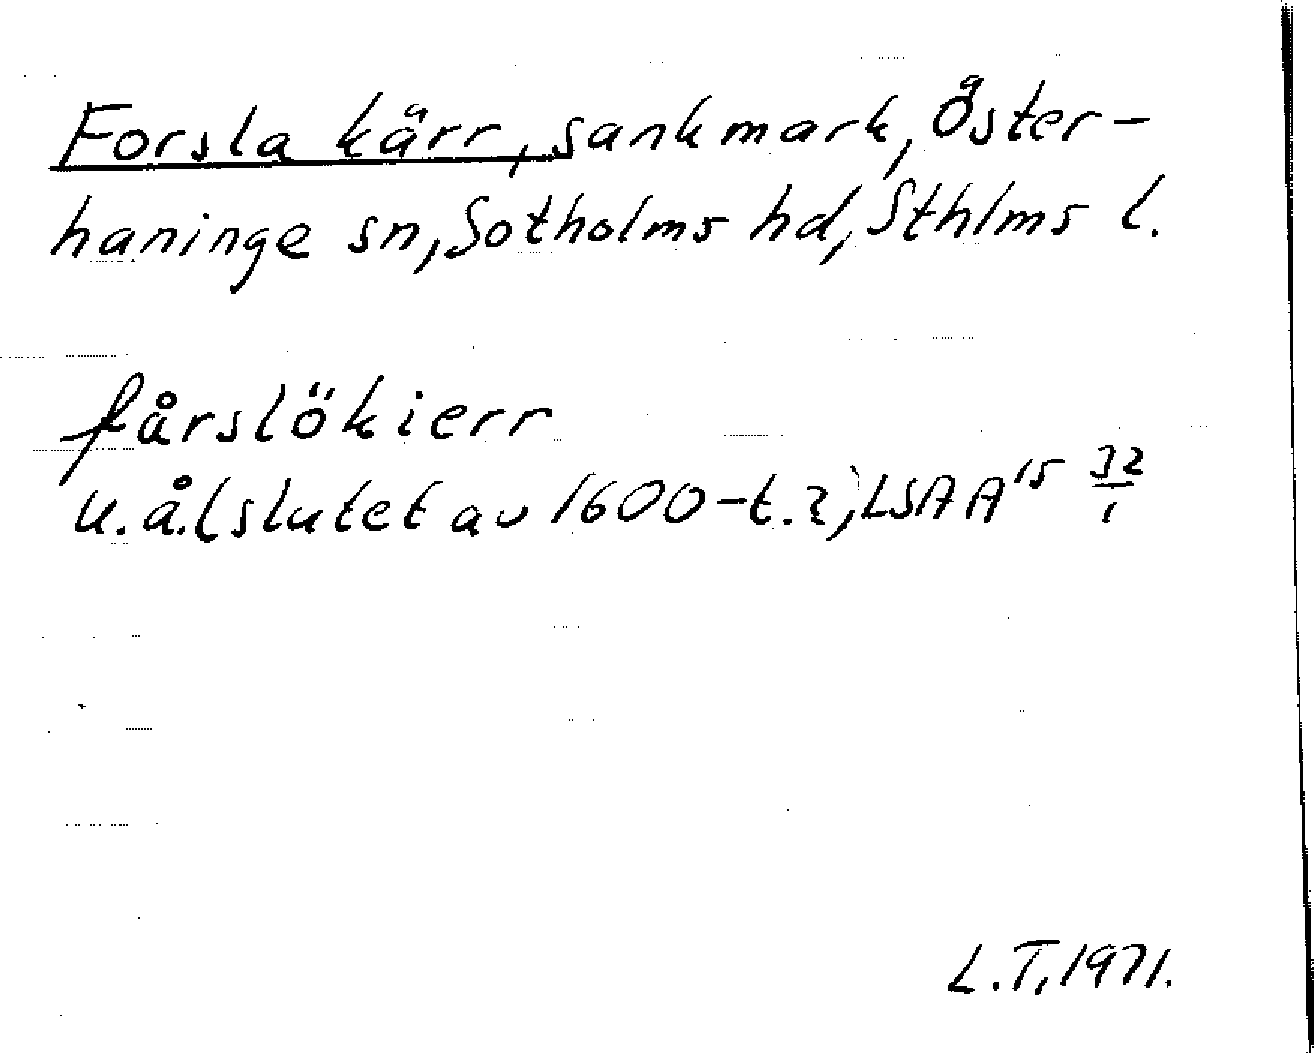 Forsla kärr, sankmark, Öster-
haninge sn, Sotholms hd, Sthlms l.
fårslökierr
u.å. (slutet av 1600-t.?), LSA A15 32/1
L.T. 1971.